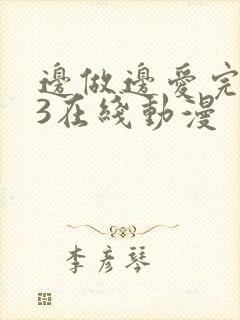 邊做邊愛完
3在綫動漫
李彥琴